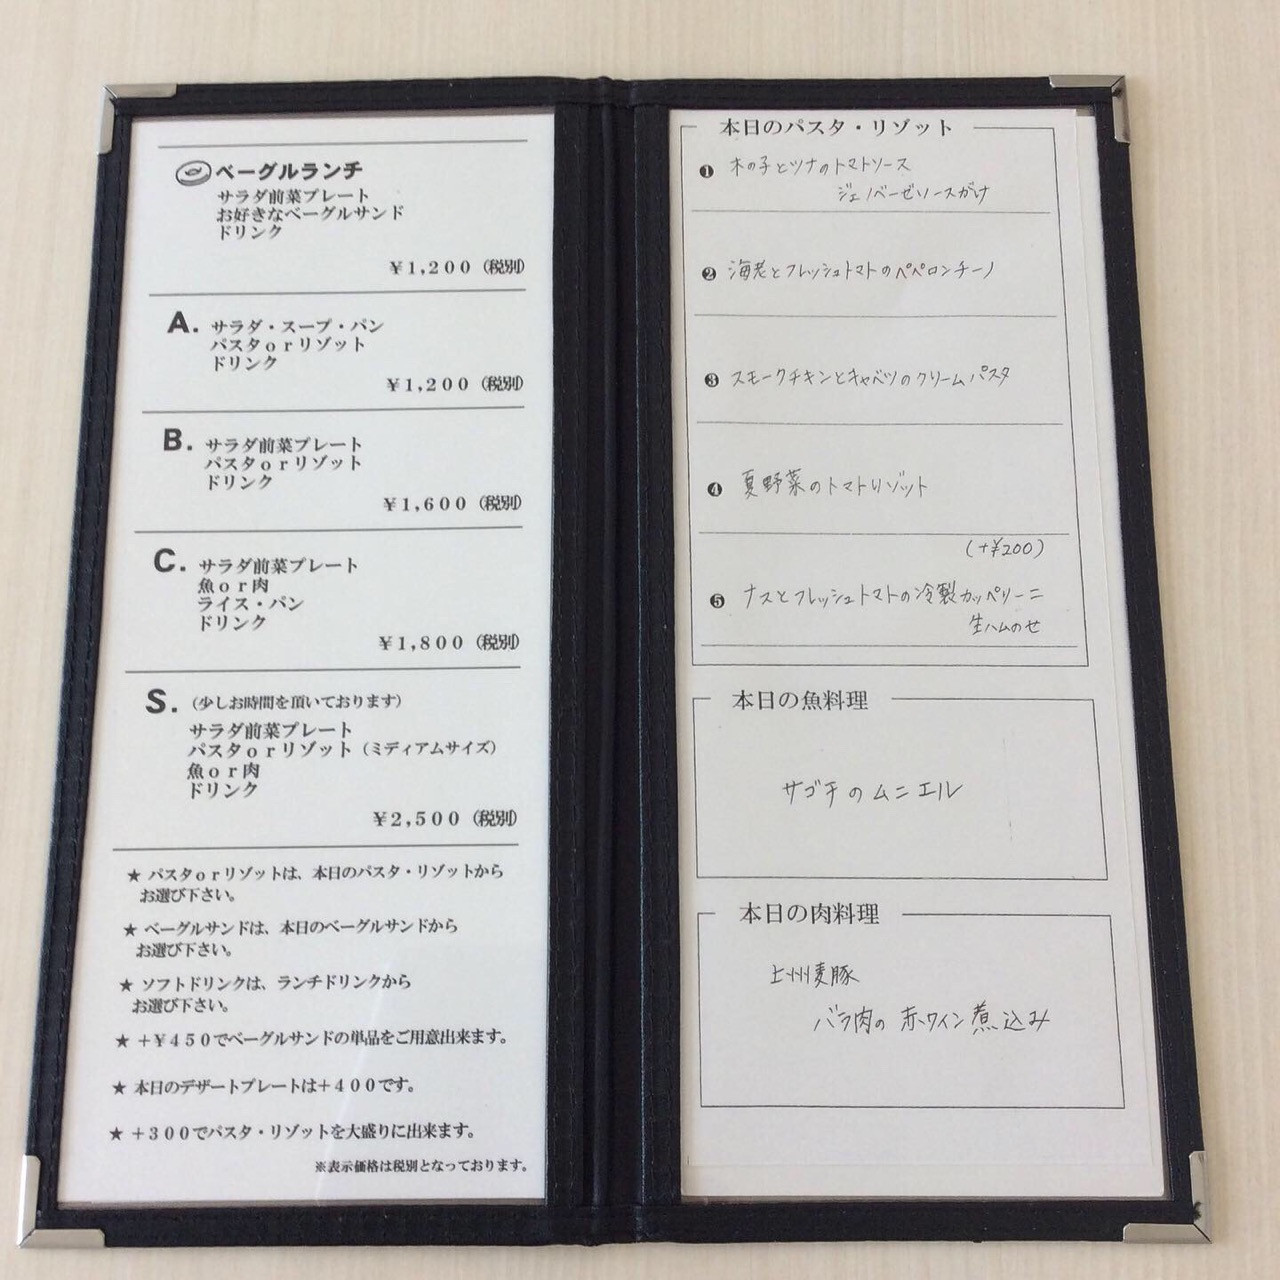 ベーグルランチ
サラダ前菜プレート
お好きなベーグルサンド
ドリンク
￥1,200（税別）
A. サラダ・スープ・パン
パスタorリゾット
ドリンク
￥1,200（税別）
B. サラダ前菜プレート
パスタorリゾット
ドリンク
￥1,600（税別）
C. サラダ前菜プレート
魚or肉
ライス・パン
ドリンク
￥1,800（税別）
S.（少しお時間を頂いております）
サラダ前菜プレート
パスタorリゾット（ミディアムサイズ）
魚or肉
ドリンク
￥2,500（税別）
★ パスタorリゾットは、本日のパスタ・リゾットから
お選び下さい。
★ ベーグルサンドは、本日のベーグルサンドから
お選び下さい。
★ ソフトドリンクは、ランチドリンクから
お選び下さい。
★ ＋￥450でベーグルサンドの単品をご用意出来ます。
★ 本日のデザートプレートは＋400です。
★ ＋300でパスタ・リゾットを大盛りに出来ます。
※表示価格は税別となっております。
本日のパスタ・リゾット
❶ 木の子とツナのトマトソース
ジェノベーゼソースがけ
❷ 海老とフレッシュトマトのペペロンチーノ
❸ スモークチキンとキャベツのクリームパスタ
❹ 夏野菜のトマトリゾット
（+¥200）
❺ ナスとフレッシュトマトの冷製カッペリーニ
生ハムのせ
本日の魚料理
サゴチのムニエル
本日の肉料理
上州麦豚
バラ肉の赤ワイン煮込み